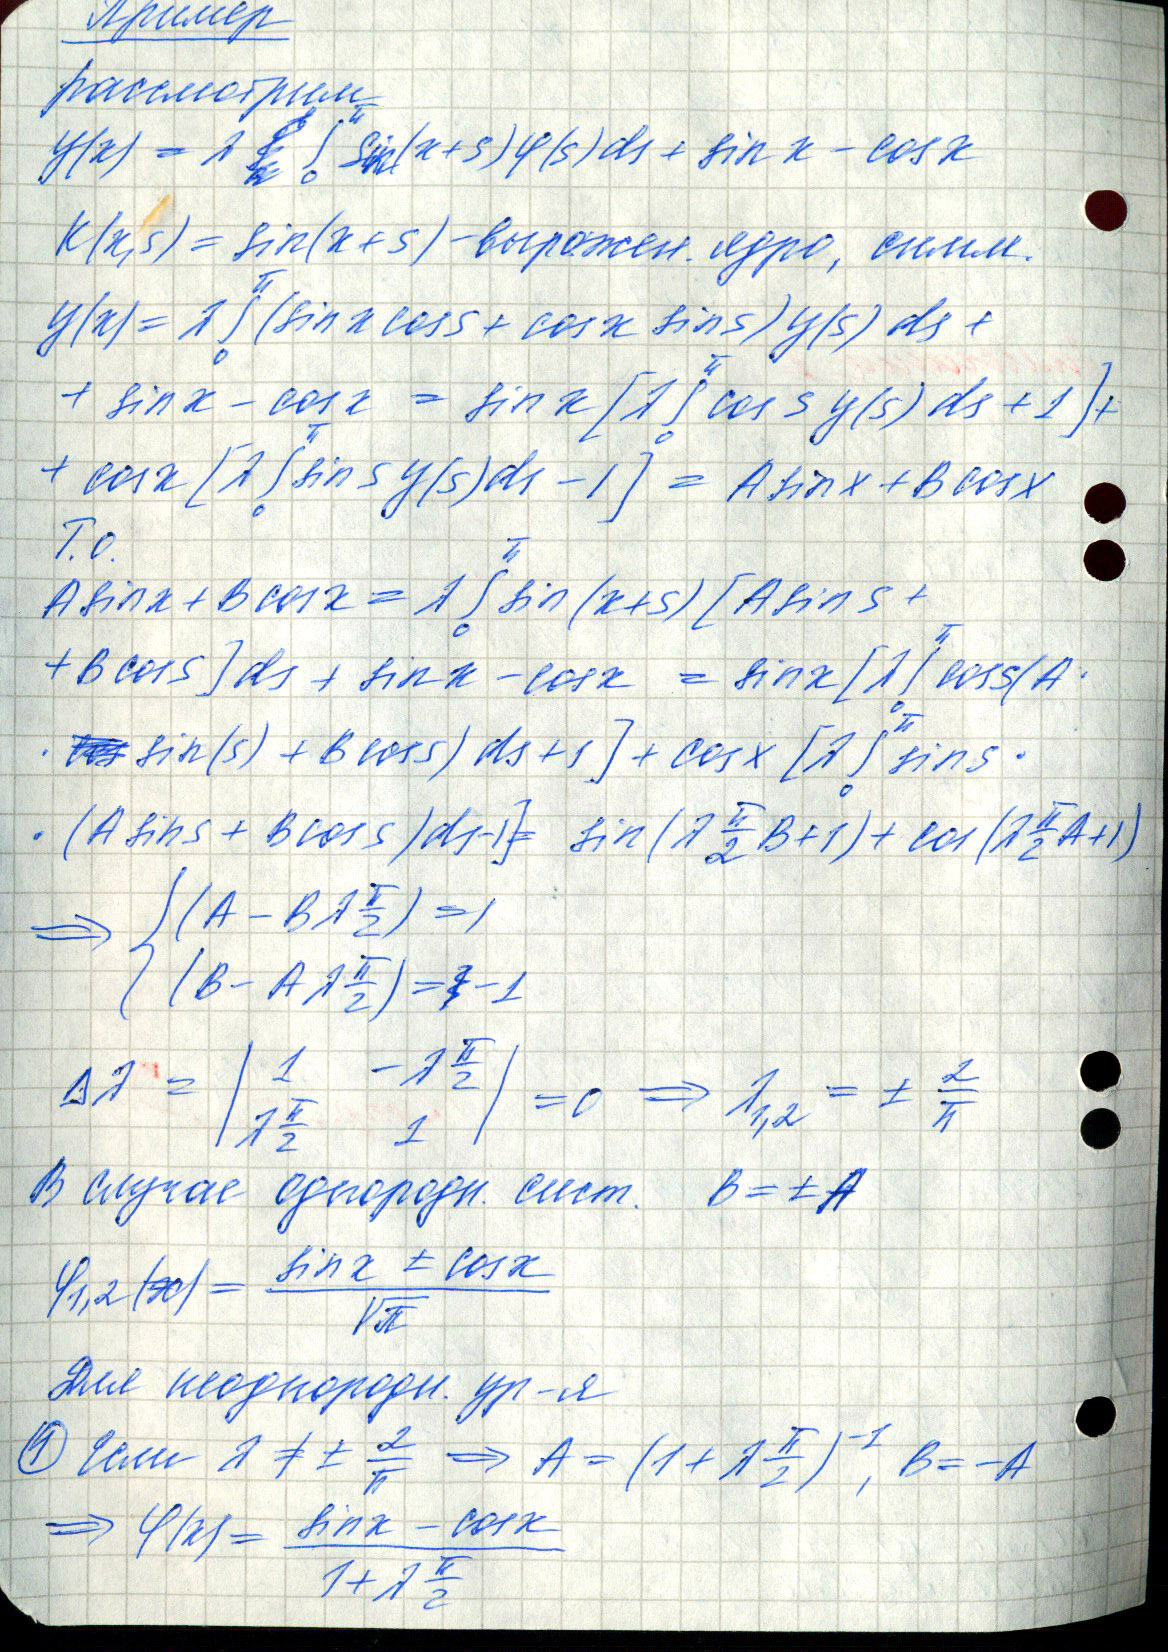 Пример
рассмотрим
y(x) = λ ∫₀^π sin(x+s) φ(s) ds + sin x − cos x
K(x,s) = sin(x+s) – вырожен. ядро, симм.
y(x) = λ ∫₀^π (sin x cos s + cos x sin s) y(s) ds +
+ sin x − cos x = sin x [λ ∫₀^π cos s y(s) ds + 1] +
+ cos x [λ ∫₀^π sin s y(s) ds − 1] = A sin x + B cos x
Т.о.
A sin x + B cos x = λ ∫₀^π sin(x+s) [A sin s +
+ B cos s] ds + sin x − cos x = sin x [λ ∫₀^π cos s (A ·
· sin(s) + B cos s) ds + 1] + cos x [λ ∫₀^π sin s ·
· (A sin s + B cos s) ds − 1] = sin(λ π/2 B + 1) + cos(λ π/2 A + 1)
⇒ { (A − B λ π/2) = 1
(B − A λ π/2) = −1
Δλ = | 1 −λ π/2 |
| λ π/2 1 | = 0 ⇒ λ₁,₂ = ± 2/π
В случае однородн. сист. B = ± A
φ₁,₂(x) = (sin x ± cos x)/√π
Для неоднородн. ур-я
① Если λ ≠ ± 2/π ⇒ A = (1 + λ π/2)⁻¹, B = −A
⇒ φ(x) = (sin x − cos x)/(1 + λ π/2)